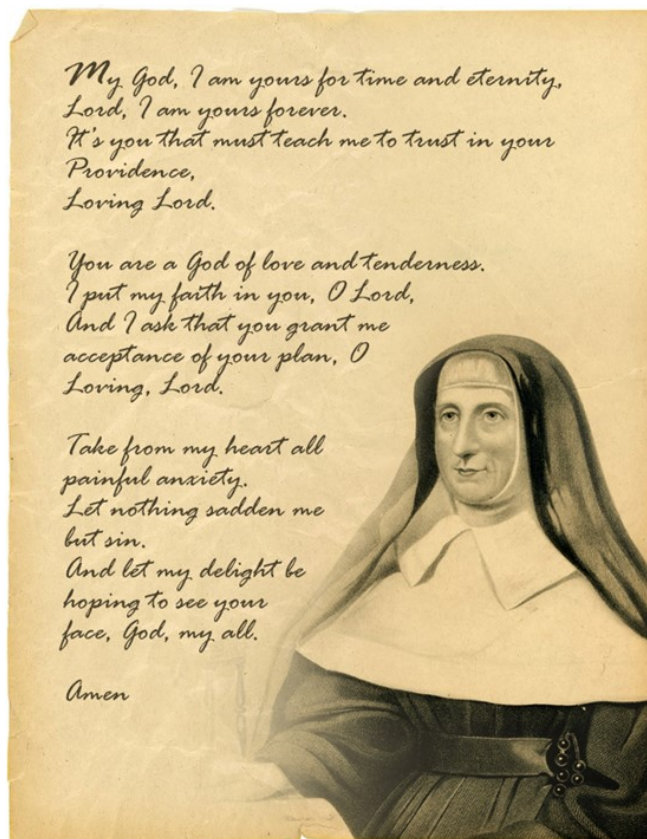 My God, I am yours for time and eternity,
Lord, I am yours forever.
It's you that must teach me to trust in your
Providence,
Loving Lord.
You are a God of love and tenderness.
I put my faith in you, O Lord,
And I ask that you grant me
acceptance of your plan, O
Loving, Lord.
Take from my heart all
painful anxiety.
Let nothing sadden me
but sin.
And let my delight be
hoping to see your
face, God, my all.
Amen